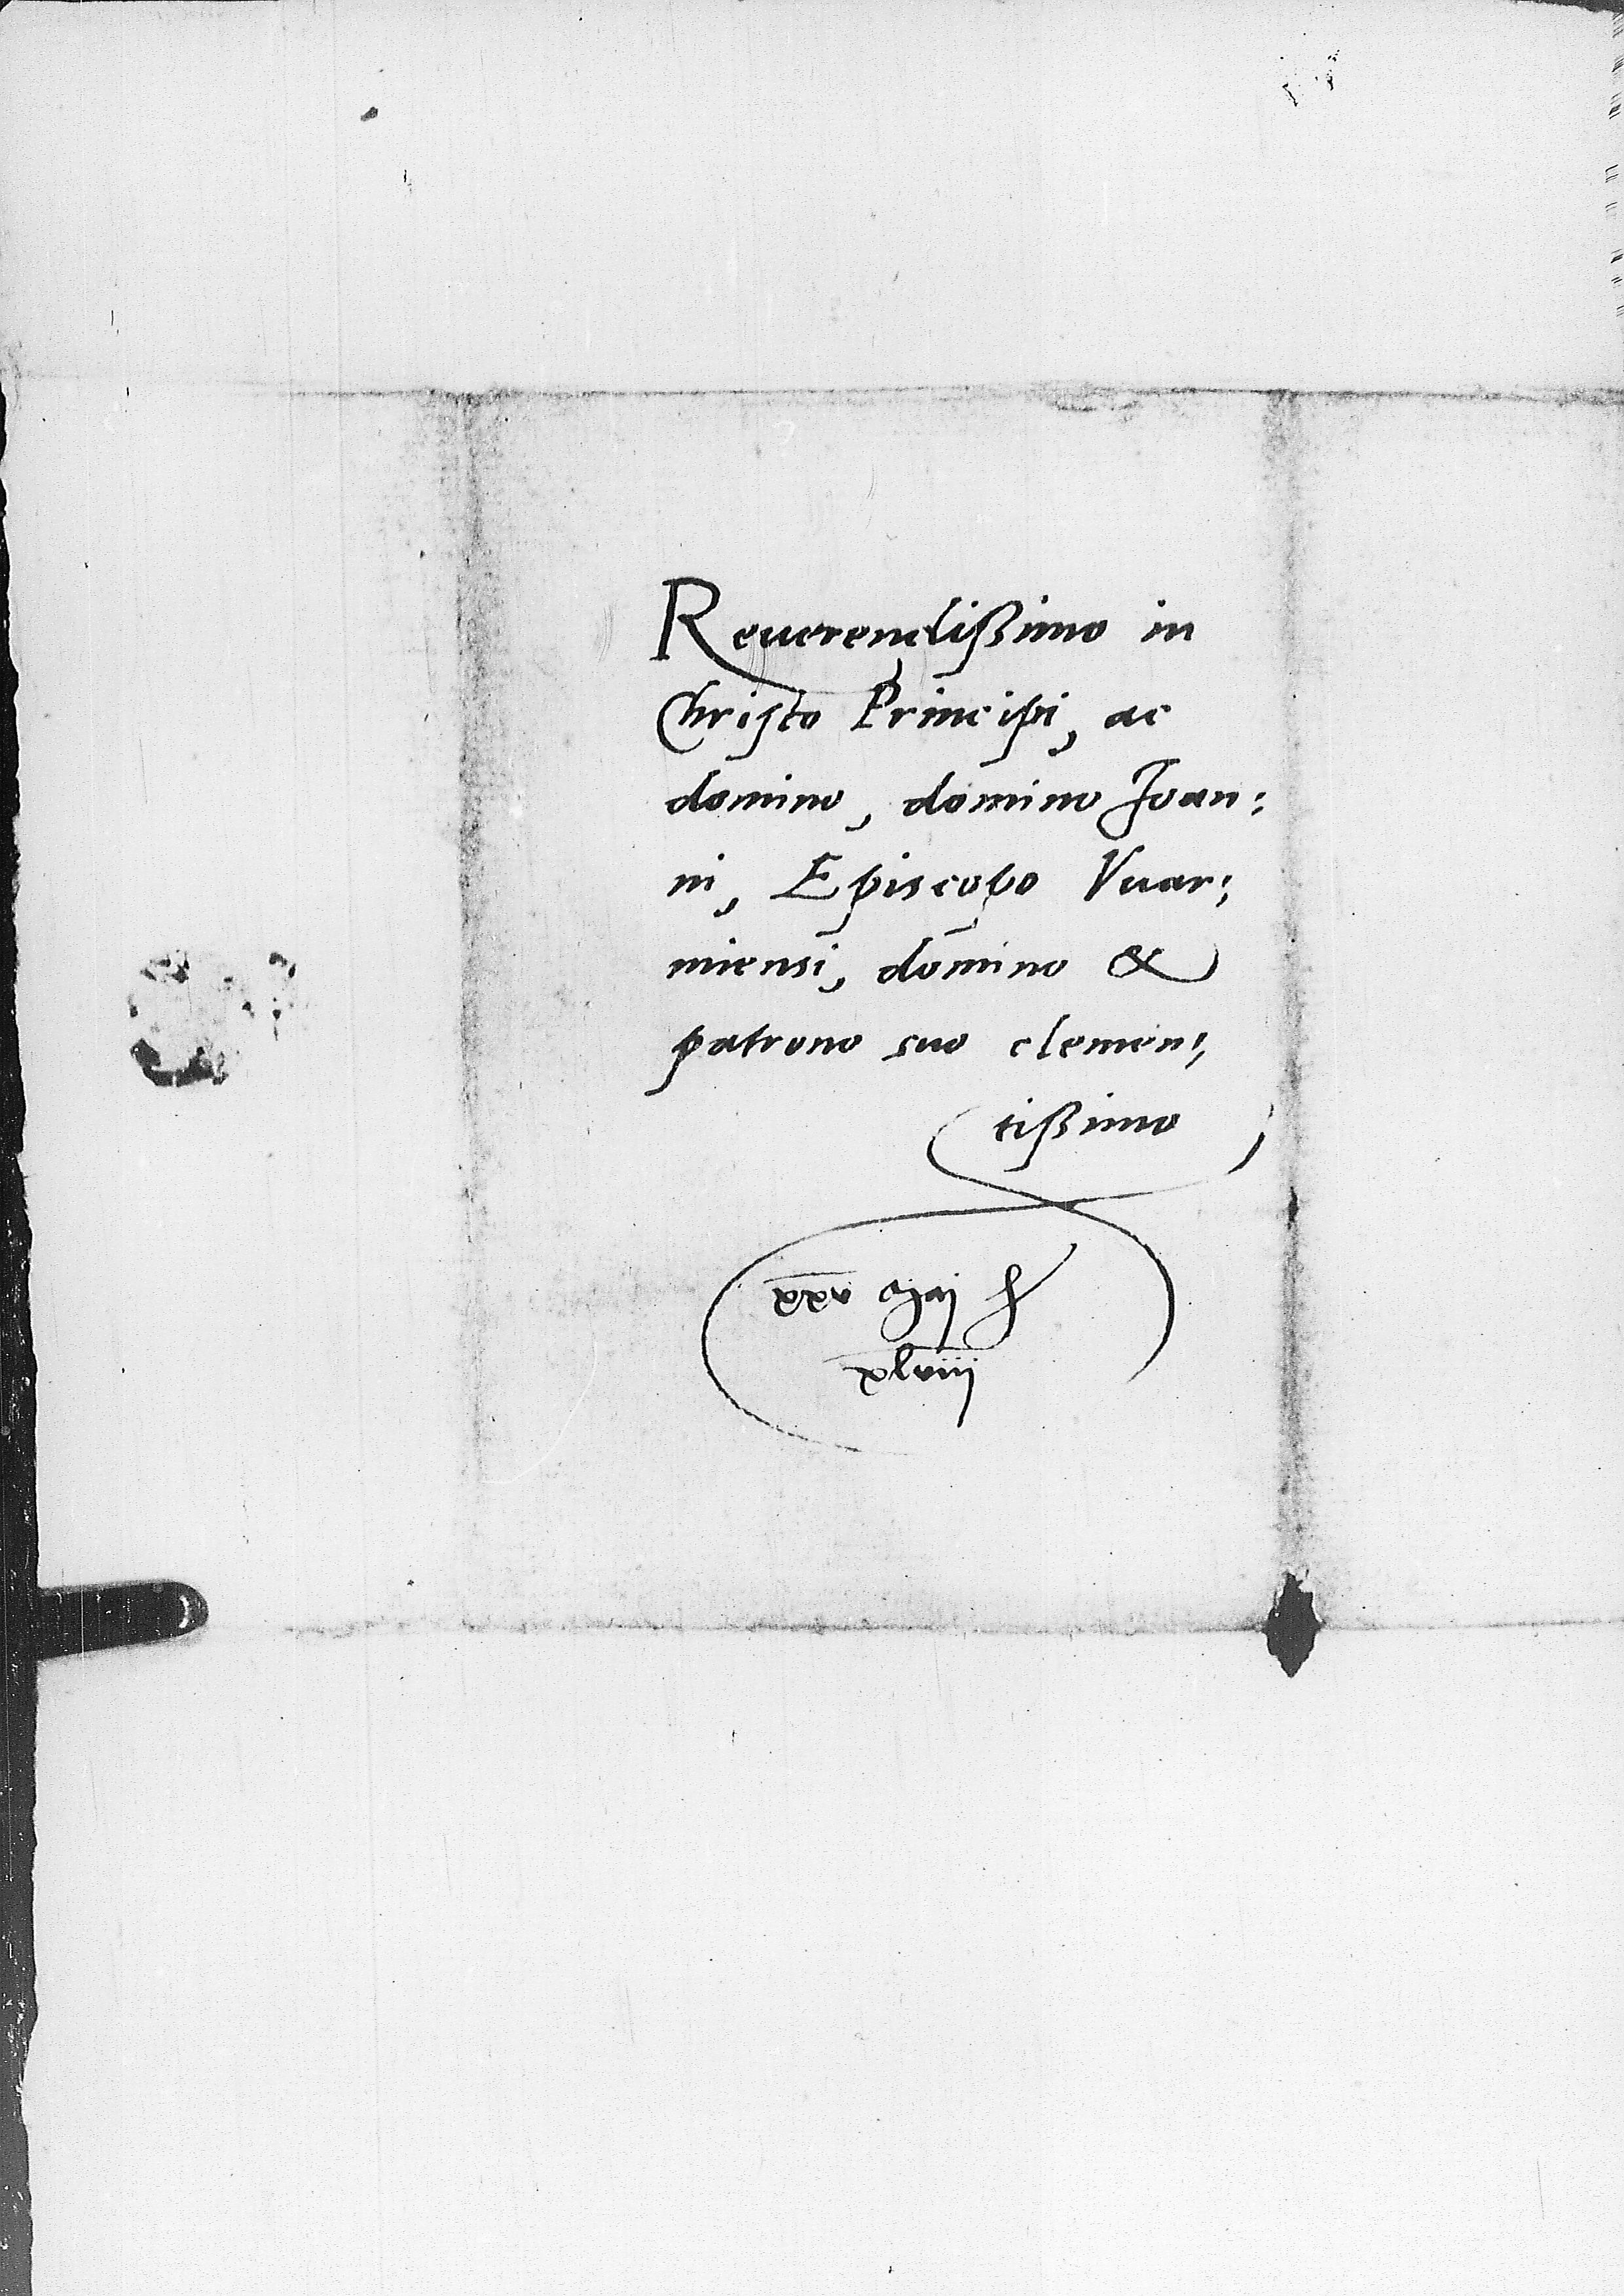 Reuerendißimo in
Christo Principi, ac
domino, domino Ioan:
ni, Episcopo Vuar:
miensi, domino &
patrono suo clemen:
tißimo
xxv
xlviij